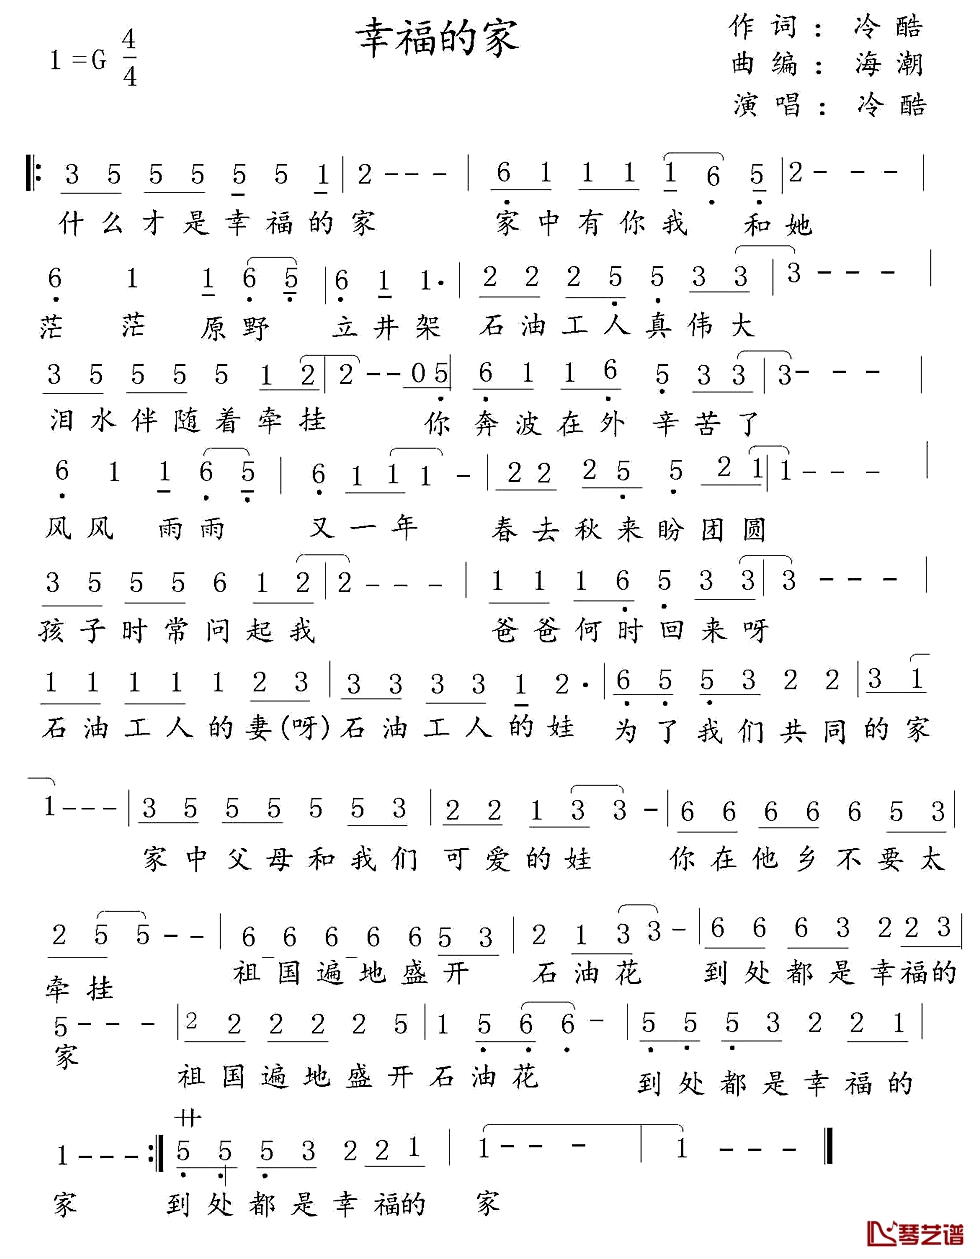 幸福的家
1=G 4/4
作词：冷酷
曲编：海潮
演唱：冷酷
3 5 5 5 5 5 1 | 2 - - - | 6 1 1 1 1 6 5 | 2 - - - |
什么才是幸福的家 家中有你我 和她
6 1 1 6 5 | 6 1 1· | 2 2 2 5 5 3 3 | 3 - - - |
茫 茫 原野 立井架 石油工人真伟大
3 5 5 5 5 1 2 | 2 - - 0 5 | 6 1 1 6 5 3 3 | 3 - - - |
泪水伴随着牵挂 你奔波在外辛苦了
6 1 1 6 5 | 6 1 1 1 - | 2 2 2 5 5 2 1 | 1 - - - |
风风 雨雨 又一年 春去秋来盼团圆
3 5 5 5 6 1 2 | 2 - - - | 1 1 1 6 5 3 3 | 3 - - - |
孩子时常问起我 爸爸何时回来呀
1 1 1 1 1 2 3 | 3 3 3 3 1 2· | 6 5 5 3 2 2 | 3 1
石油工人的妻(呀)石油工人的娃 为了我们共同的家
1 - - - | 3 5 5 5 5 5 3 | 2 2 1 3 3 - | 6 6 6 6 6 5 3 |
家中父母和我们 可爱的娃 你在他乡不要太
2 5 5 - - | 6 6 6 6 6 5 3 | 2 1 3 3 - | 6 6 6 3 2 2 3 |
牵挂 祖国遍地盛开 石油花 到处都是幸福的
5 - - - | 2 2 2 2 2 5 | 1 5 6 6 - | 5 5 5 3 2 2 1 |
家 祖国遍地盛开石油花 到处都是幸福的
1 - - - :| 5 5 5 3 2 2 1 | 1 - - - | 1 - - - ‖
家 到处都是幸福的 家
琴艺谱